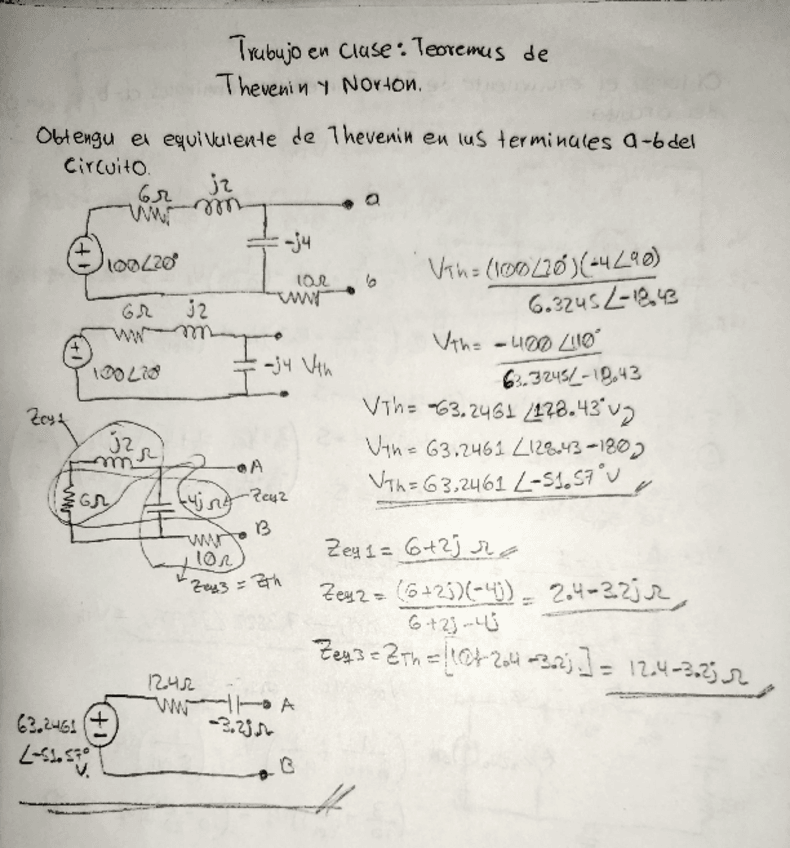 Trabajo en Clase: Teoremas de
Thevenin y Norton.
Obtenga el equivalente de Thevenin en las terminales a-b del
Circuito.
6Ω j2
a
-j4
+
-
100∠20°
10Ω b
VTh = (100∠20°)(-4∠90)
6.3245∠-18.43
6Ω j2
+
-
100∠20
-j4 Vth
VTh = -400∠110°
6.3245∠-18.43
VTh = -63.2461∠128.43°V
VTh = 63.2461∠128.43-180
VTh = 63.2461∠-51.57°V
Zeq1
j2 Ω
A
6Ω
-4jΩ
Zeq2
B
10Ω
Zeq3 = Zth
Zeq1 = 6+2j Ω
Zeq2 = (6+2j)(-4j) = 2.4-3.2j Ω
6+2j-4j
Zeq3 = ZTh = [10+2.4-3.2j] = 12.4-3.2j Ω
12.4Ω
A
-3.2jΩ
63.2461
∠-51.57°
V.
+
-
B